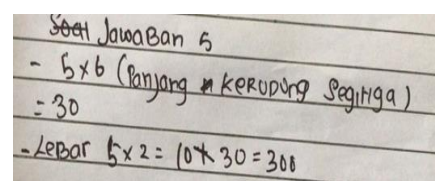 Jawaban 5
- 5x6 (Panjang KERUDUNG SEGITIGA)
= 30
- Lebar 5x2 = 10 x 30 = 300